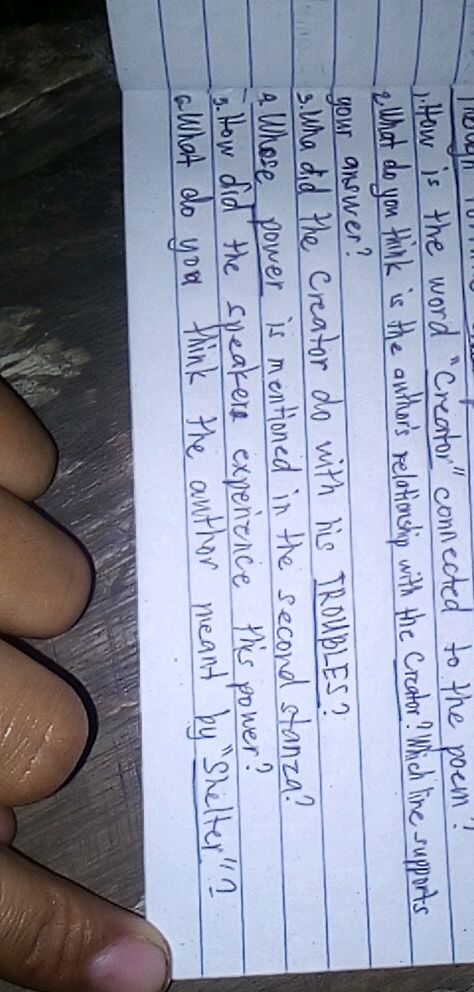 1. How is the word "Creator" connected to the poem?
2. What do you think is the author's relationship with the Creator? Which line supports
your answer?
3. Who did the Creator do with his TROUBLES?
4. Whose power is mentioned in the second stanza?
5. How did the speakers experience this power?
6. What do you think the author meant by "Shelter"?